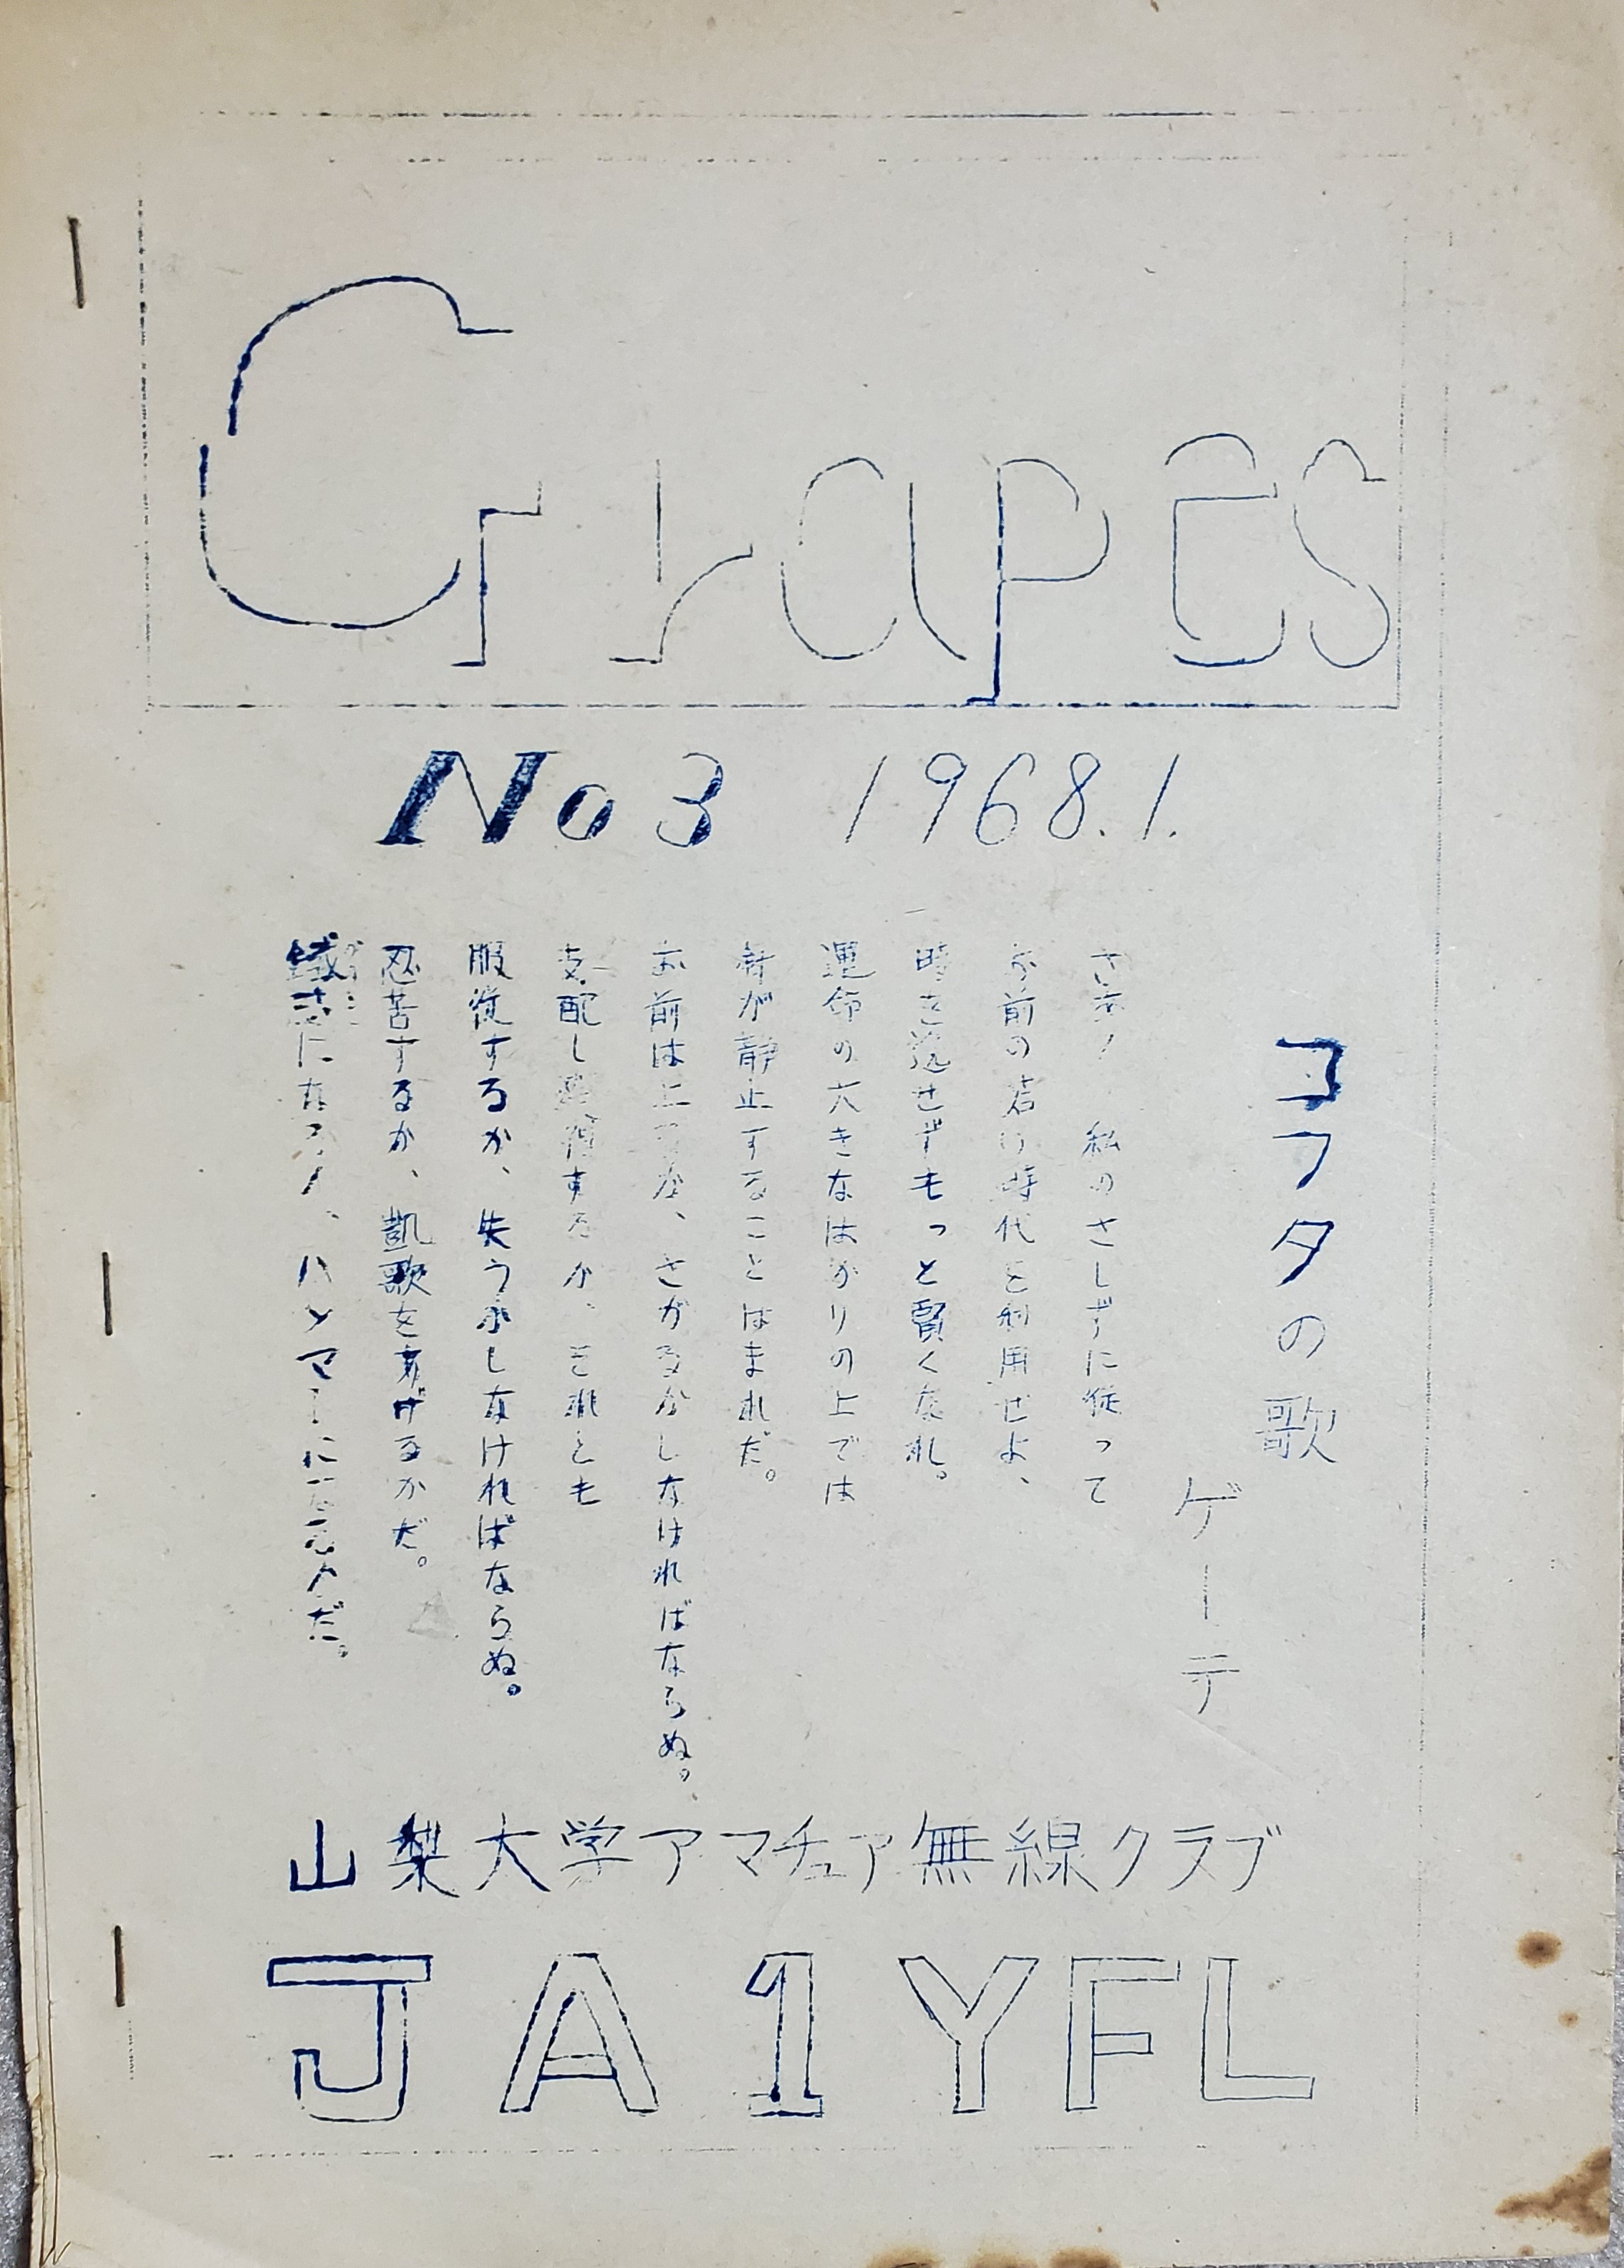 Grapes
No 3 1968.1.
コフタの歌
ゲーテ
さあ! 私のさしずに従って
お前の若い時代を利用せよ、
時を逸せずもっと賢くなれ。
運命の大きなはかりの上では
針が静止することはまれだ。
お前は上るか、さがるかしなければならぬ。
支配し獲得するか、それとも
服従するか、失うかしなければならぬ。
忍苦するか、凱歌をあげるかだ。
になるか、ハンマーになるかだ。
山梨大学アマチュア無線クラブ
JA1YFL